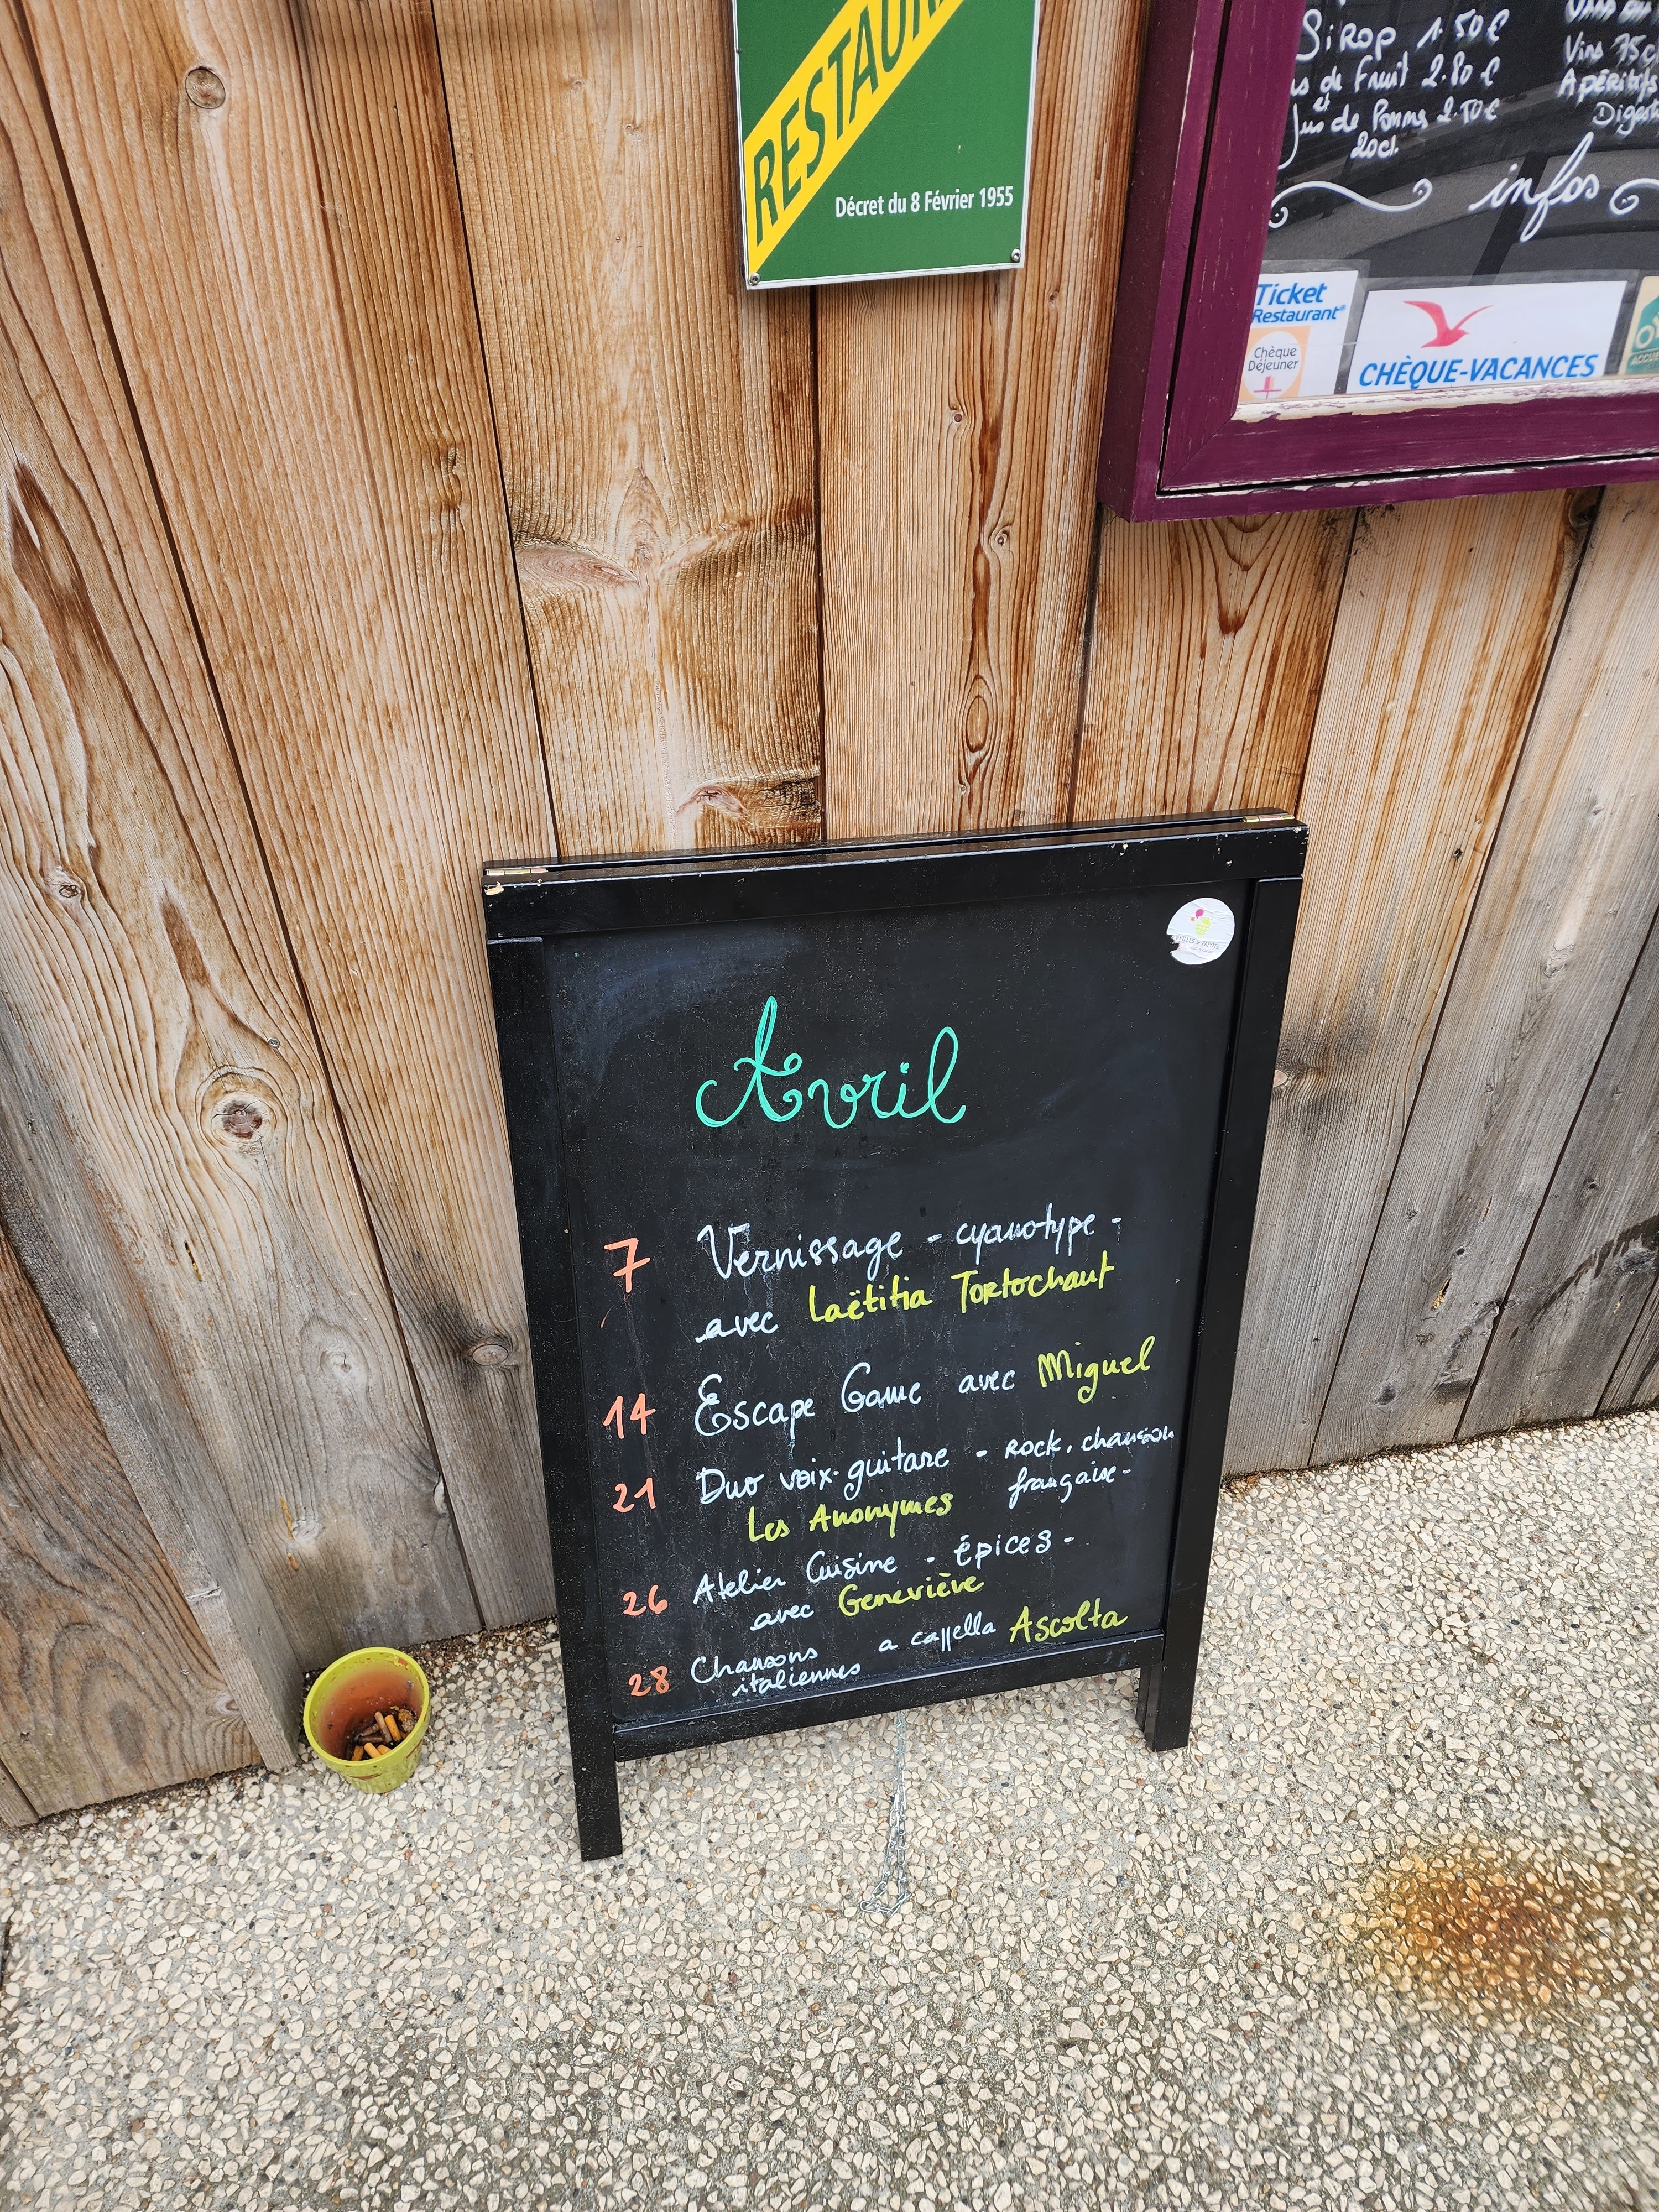 RESTAUR
Décret du 8 Février 1955
Sirop 1.50€
de Fruit 2.80€
Jus de Pomme 2.50€
20cl.
Vins 75cl
Apéritifs
infos
Ticket
Restaurant®
Chèque
Déjeuner
CHÈQUE-VACANCES
Avril
7 Vernissage - cyanotype -
avec Laëtitia Tortochaut
14 Escape Game avec Miguel
21 Duo voix-guitare - Rock, chanson
française -
Les Anonymes
26 Atelier Cuisine - épices -
avec Geneviève
28 Chansons a cappella Ascolta
italiennes